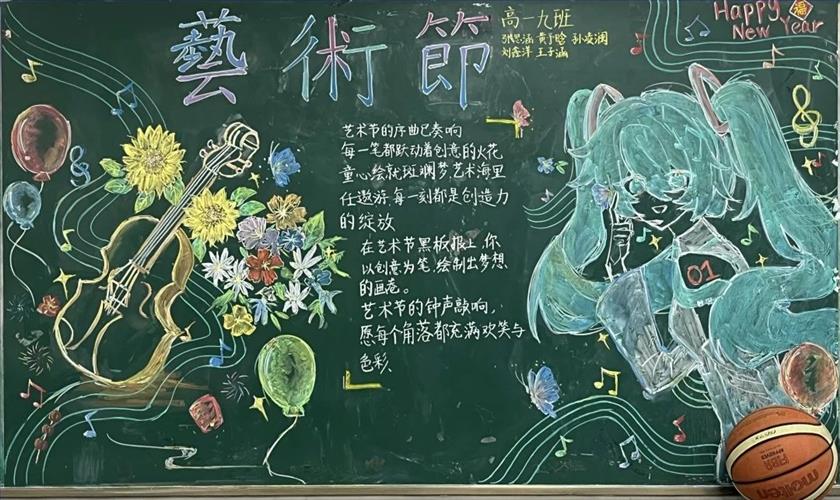 藝術節
高一九班
张思涵 黄于晗 孙凌澜
刘鑫洋 王子涵
Happy
New Year
福
艺术节的序曲已奏响
每一笔都跃动着创意的火花
童心绘就斑斓梦,艺术海里
任遨游,每一刻都是创造力
的绽放
在艺术节黑板报上,你
以创意为笔,绘制出梦想
的画卷。
艺术节的钟声敲响,
愿每个角落都充满欢笑与
色彩.
01
molten
FIBA